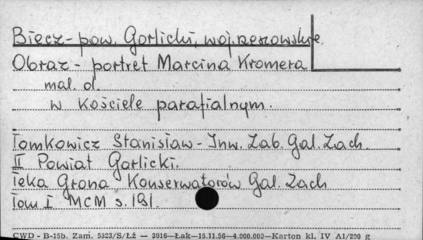 Biecz - pow. Gorlicki, woj. rzeszowskie.
Obraz - portret Marcina Kromera
mal. ol.
w kościele parafialnym.
Tomkowicz Stanisław - Inw. Zab. Gal. Zach.
II Powiat Gorlicki.
Teka Grona Konserwatorów Gal. Zach
Tom I MCM s. 191.
CWD - B-15b. Zam. 5323/S/Łż — 3916 — Łak — 15.11.56 — 4.000.000 — Karton kl. IV A1/290 g